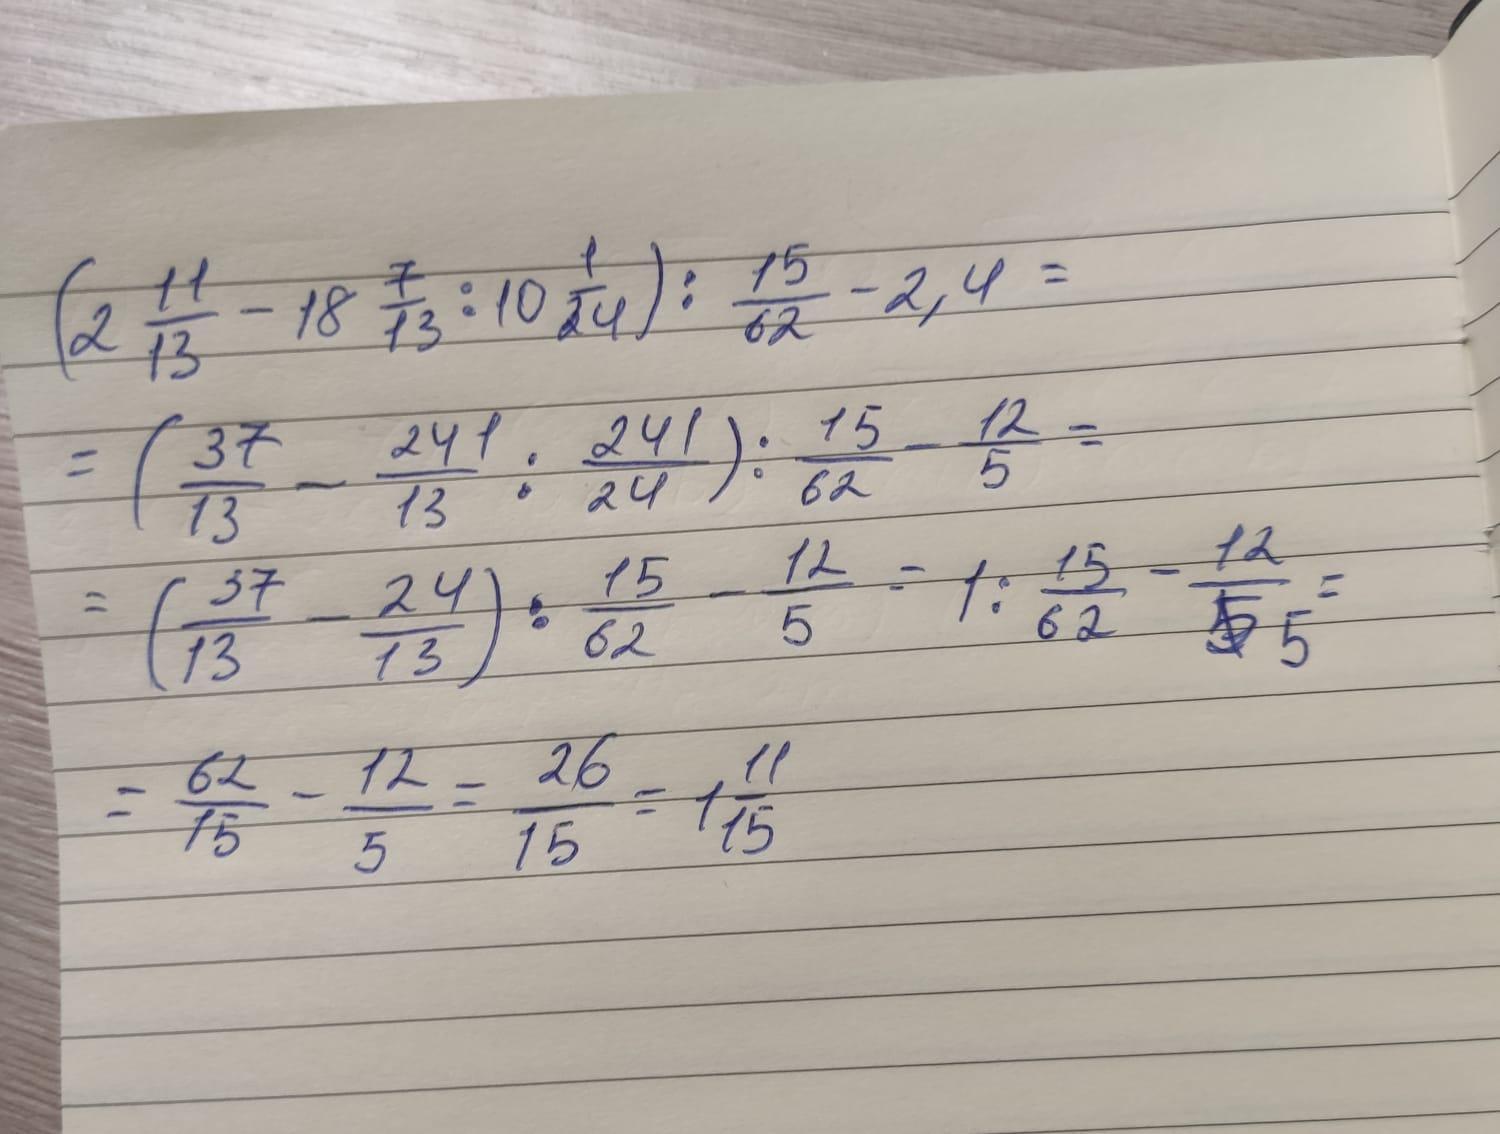 (2 11/13 - 18 7/13 : 10 1/24) : 15/62 - 2,4 =
= (37/13 - 241/13 : 241/24) : 15/62 - 12/5 =
= (37/13 - 24/13) : 15/62 - 12/5 = 1 : 15/62 - 12/5 =
= 62/15 - 12/5 = 26/15 = 1 11/15